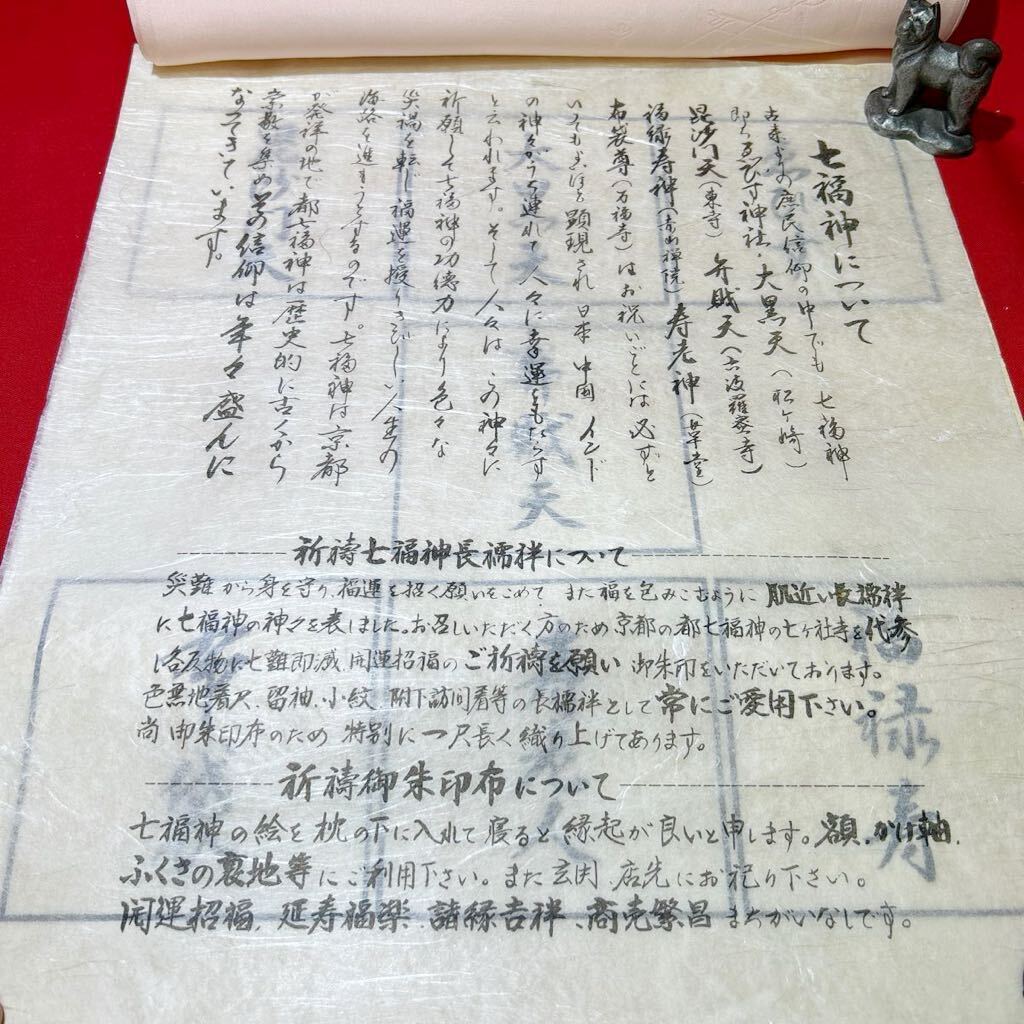 七福神について
古来よりの庶民信仰の中でも 七福神
即ちゑびす神社・大黒天(松ヶ崎)
毘沙門天(東寺) 弁財天(六波羅蜜寺)
福緑寿神(赤山禅院) 寿老神(革堂)
布袋尊(万福寺)はお祝いごとには必ずと
いってもよいほど顕現され 日本 中国 インド
の神々がうち連れて人々に幸運をもたらす
と云われます。そして人々は、この神々に
祈願して七福神の功徳力により色々な
災禍を転じ福運を授りきびしい人生の
海路を進もうとするのです。七福神は京都
が発祥の地で都七福神は歴史的に古くから
崇敬を集めその信仰は年々盛んに
なってきています。
祈祷七福神長襦袢について
災難から身を守り、福運を招く願いをこめて また福を包みこむように 肌近い長襦袢
に七福神の神々を表しました。お召しいただく方のため京都の都七福神の七ヶ社寺を代参
し各反物に七難即滅、開運招福のご祈祷を願い 御朱印をいただいております。
色無地着尺、留袖、小紋、附下訪問着等の長襦袢として常にご愛用下さい。
尚 御朱印布のため 特別に一尺長く織り上げてあります。
祈祷御朱印布について
七福神の絵を枕の下に入れて寝ると縁起が良いと申します。額、かけ軸、
ふくさの裏地等にご利用下さい。また玄関、店先にお祀り下さい。
開運招福、延寿福楽、諸縁吉祥、商売繁昌 まちがいなしです。
福禄寿